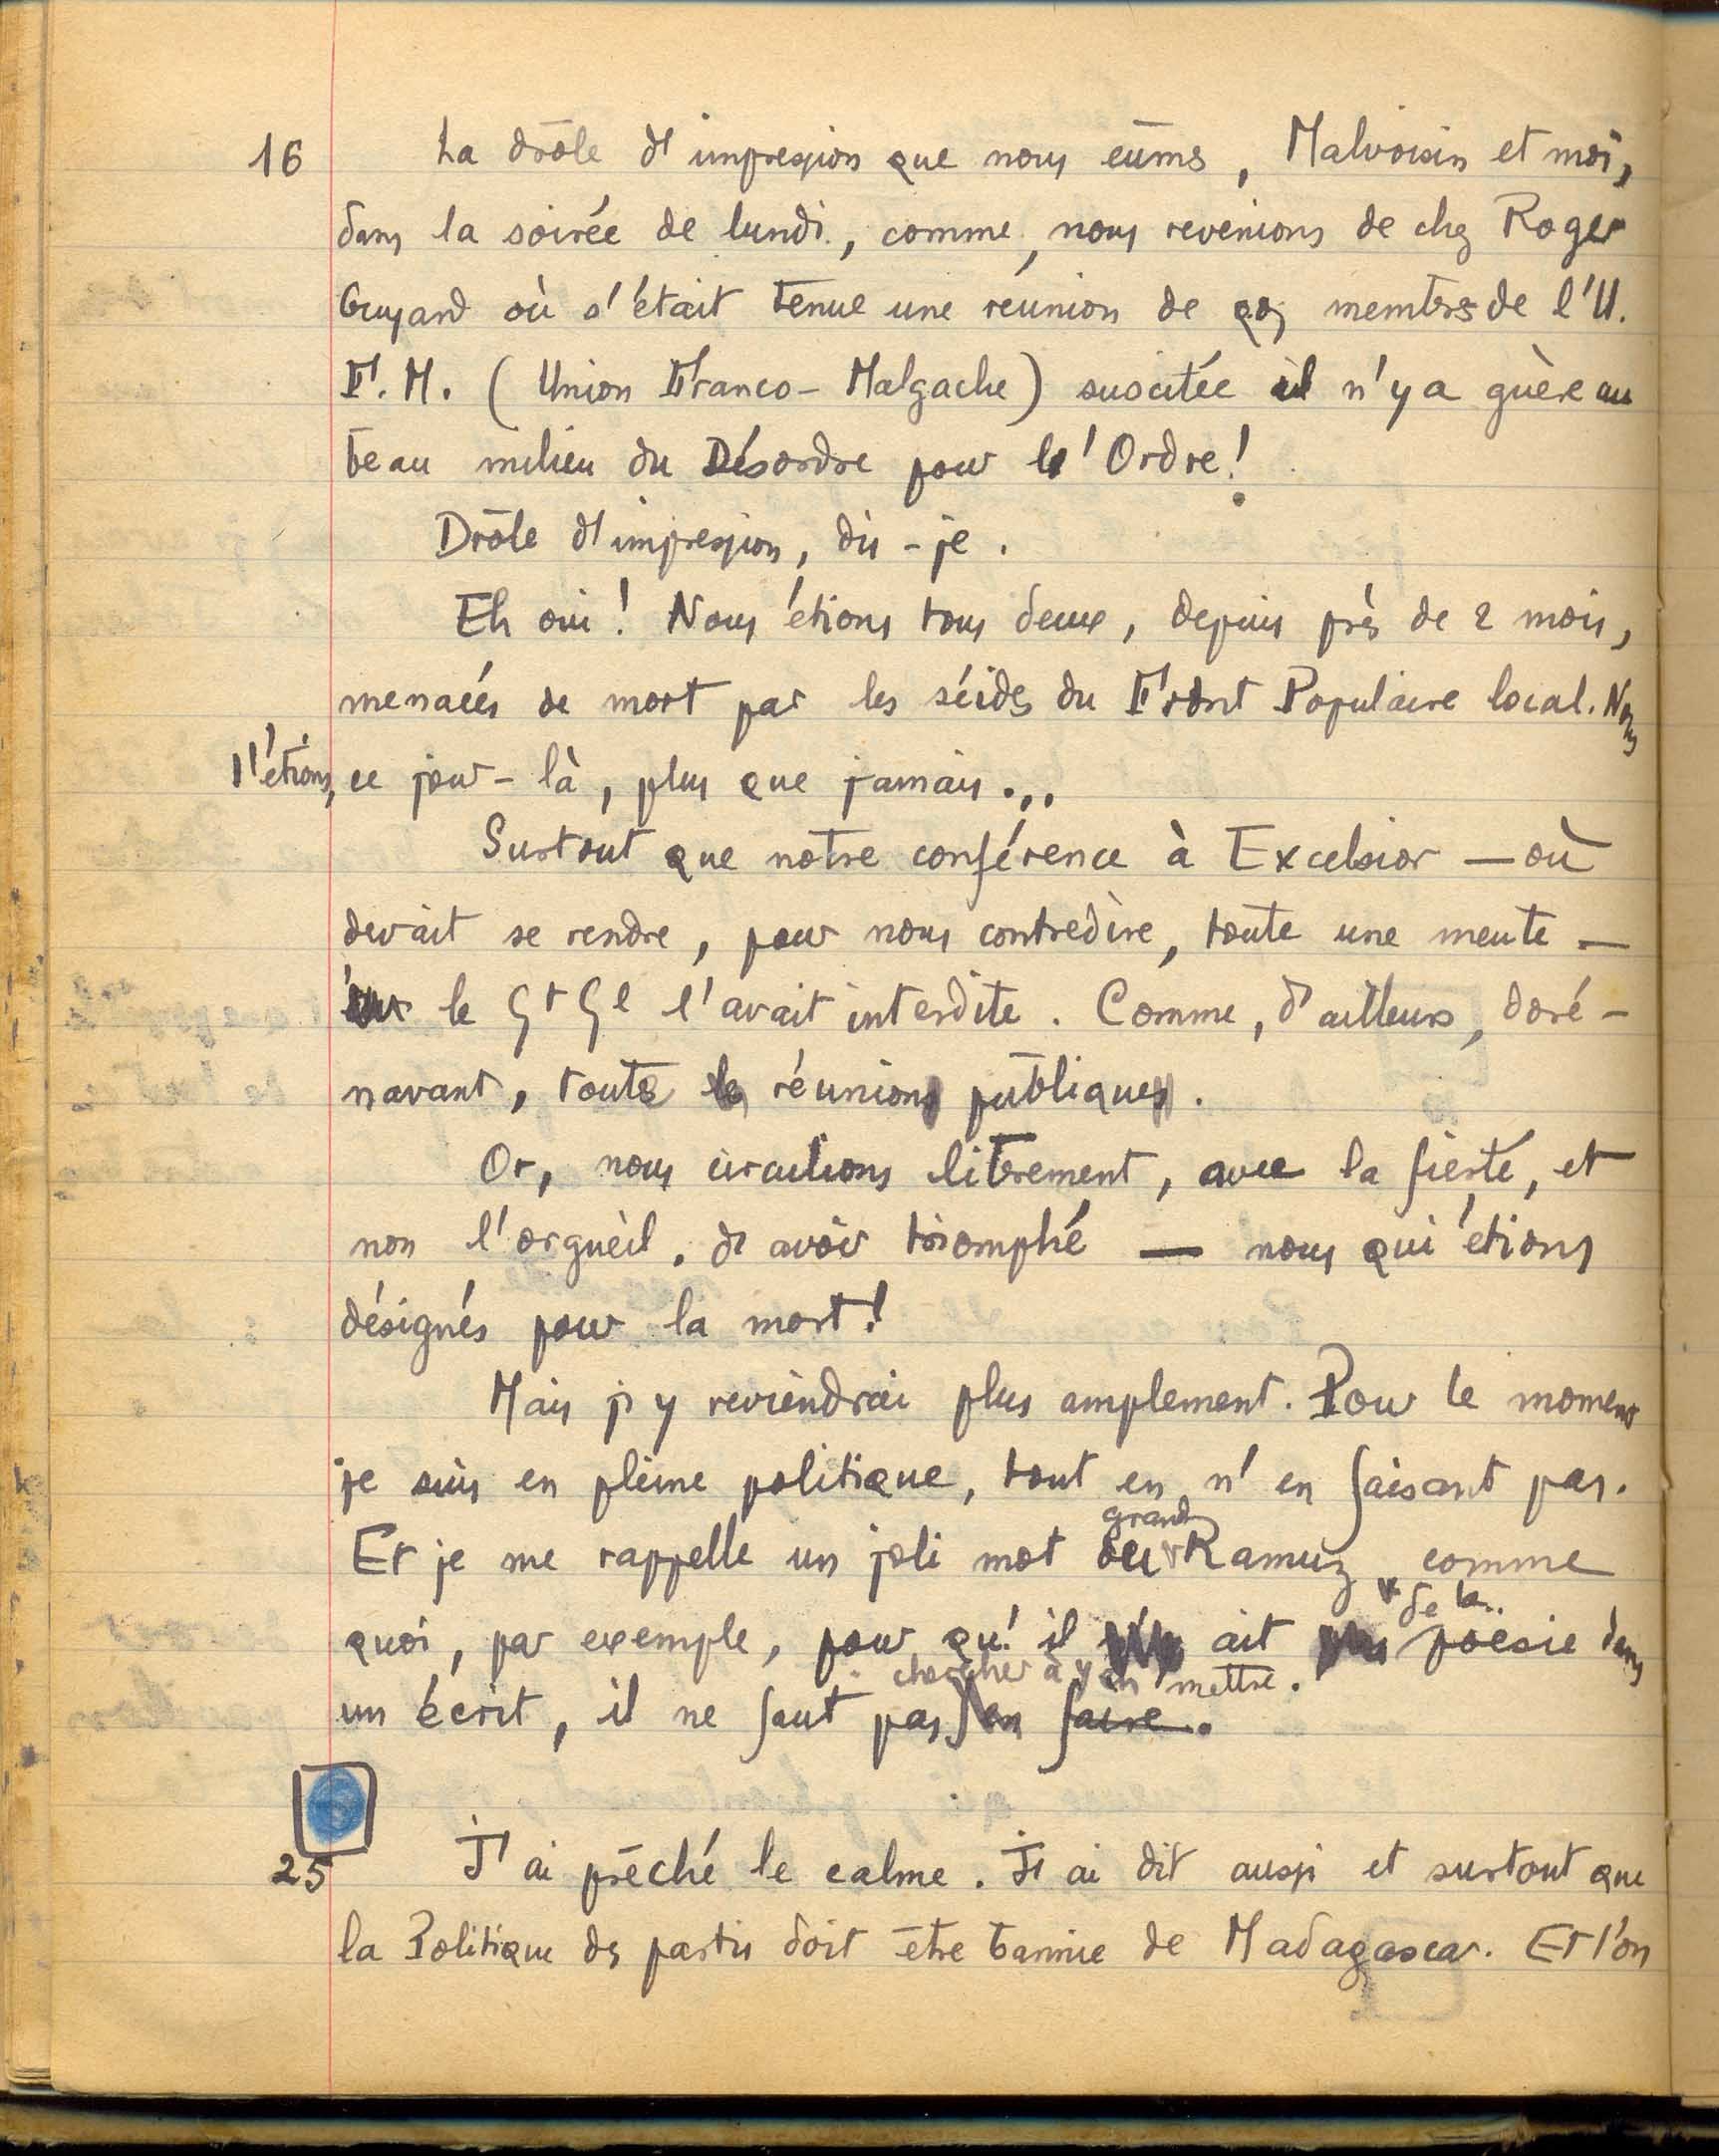 16 La drôle d'impression que nous eûmes, Malvoisin et moi,
dans la soirée de lundi, comme nous revenions de chez Roger
Guyard où s'était tenue une réunion de qqs membres de l'U.
F. M. (Union Franco-Malgache) suscitée il n'y a guère au
beau milieu du Désordre pour l'Ordre!
Drôle d'impression, dis-je.
Eh oui! Nous étions tous deux, depuis près de 2 mois,
menacés de mort par les séides du Front Populaire local. Nous
l'étions, ce jour-là, plus que jamais...
Surtout que notre conférence à Excelsior — où
devait se rendre, pour nous contredire, toute une meute —
le Gt Gl l'avait interdite. Comme, d'ailleurs, doré-
navant, toutes les réunions publiques.
Or, nous circulions librement, avec la fierté, et
non l'orgueil, d'avoir triomphé — nous qui étions
désignés pour la mort!
Mais j'y reviendrai plus amplement. Pour le moment
je suis en pleine politique, tout en n'en faisant pas.
grand
Et je me rappelle un joli mot du Ramuz comme
de la
quoi, par exemple, pour qu'il ait poésie dans
chercher à y en mettre.
un écrit, il ne faut pas en faire.
25 J'ai prêché le calme. J'ai dit aussi et surtout que
la Politique des partis doit être bannie de Madagascar. Et l'on